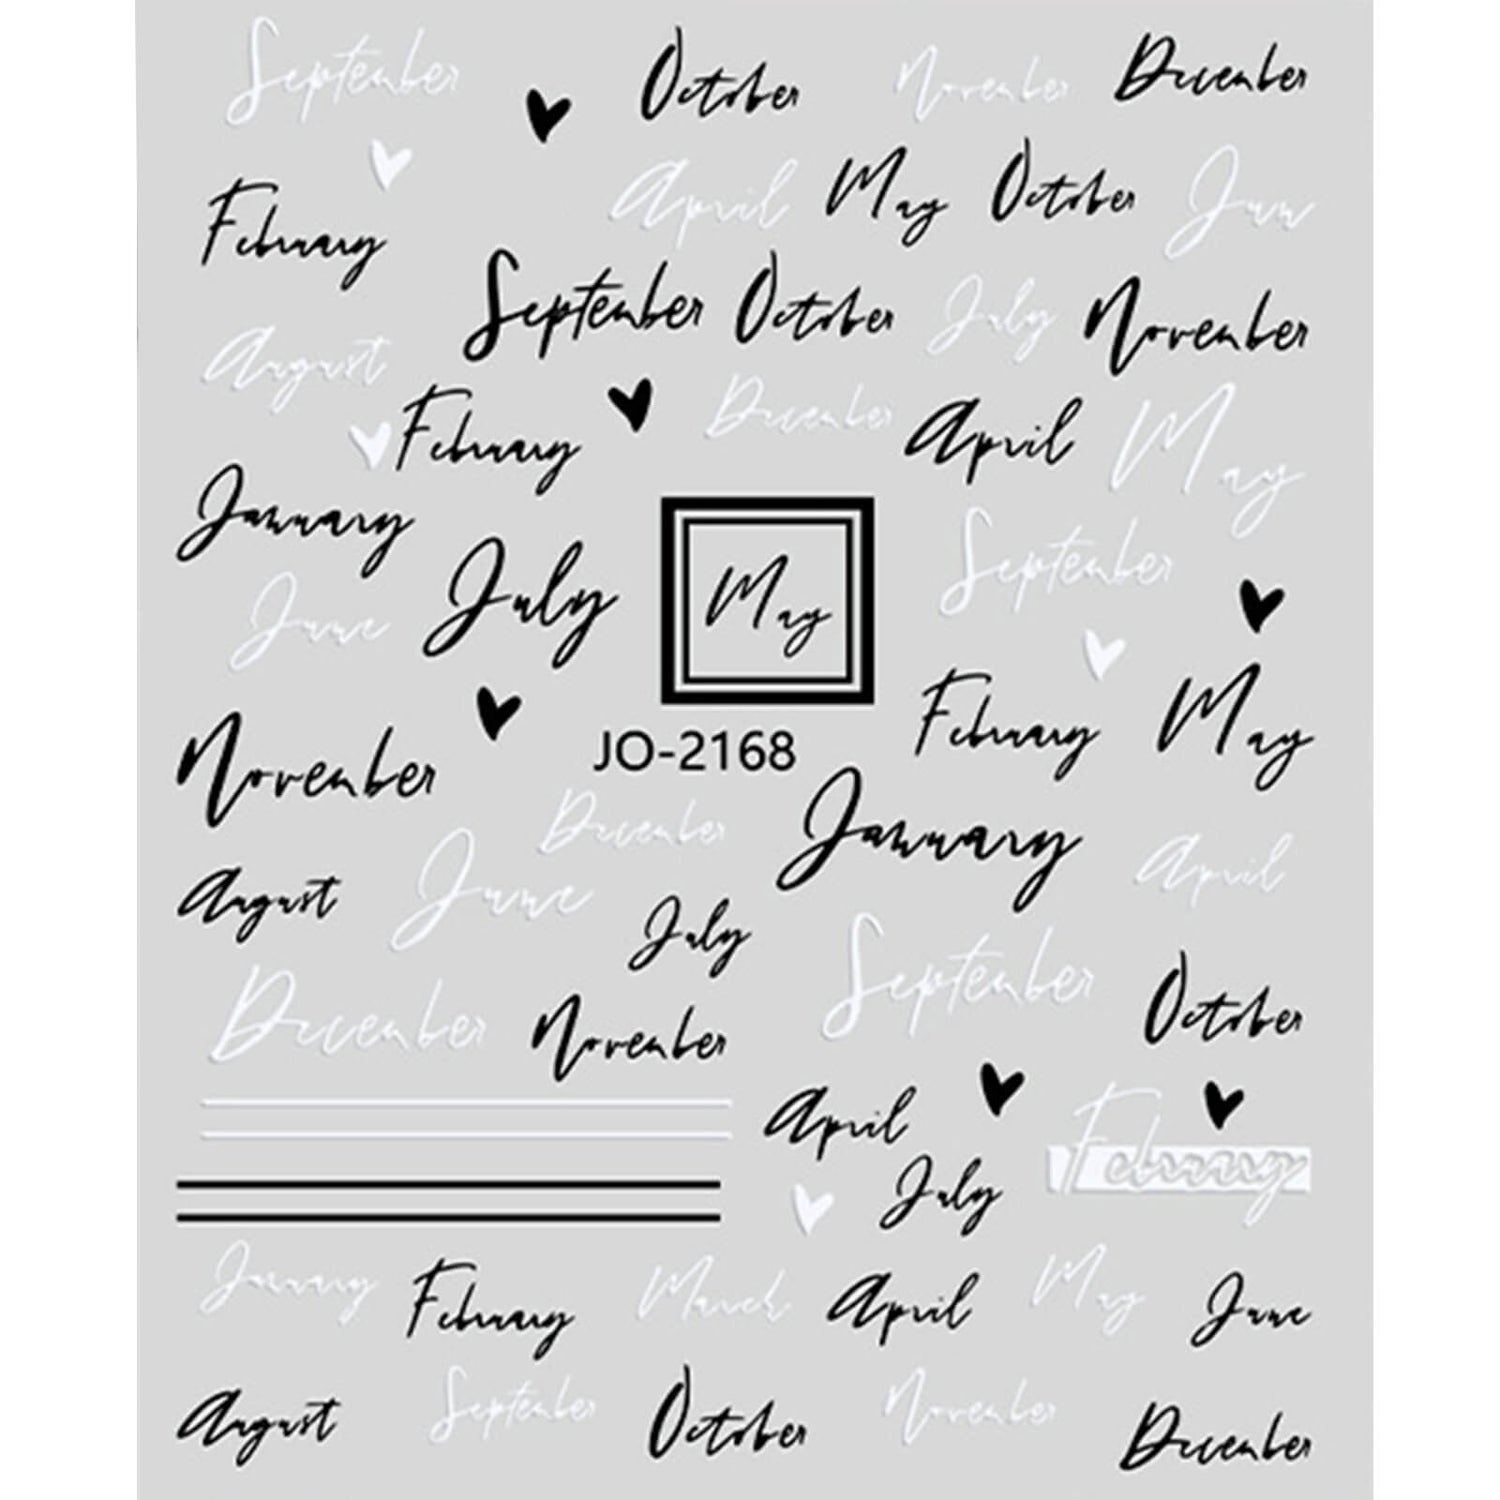 September October November December
February April May October Jun
September October July November
August
February December April May
January September
June July May
February May
November JO-2168
December January April
August June July
December November September October
April February
July
January February March April May June
August September October November December